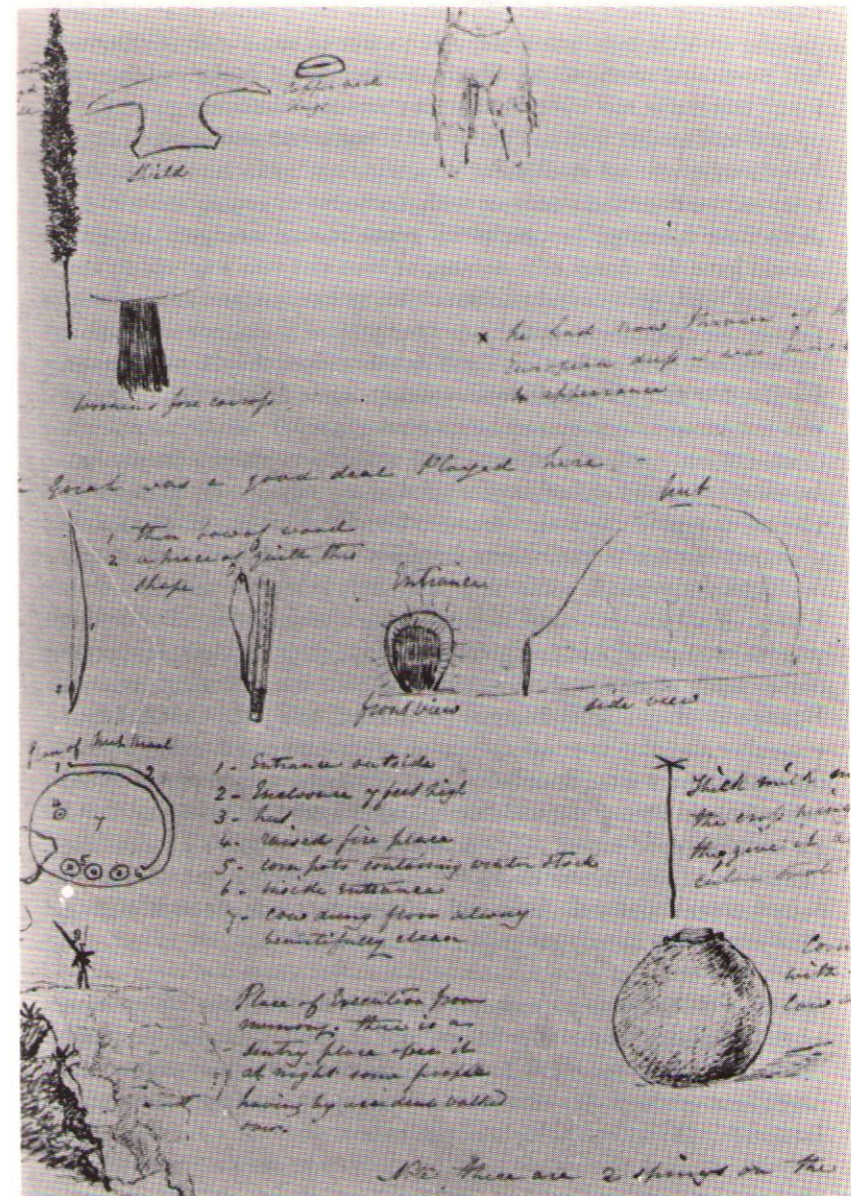 copper neck
Shield
x he had now thrown of h
European dress & was
to appearance
womens fore
Gorah was a good deal Played here. -
hut
1 thin bow of wood
2 a piece of quill this
shape
Entrance
front view
side view
1 - Entrance outside
2 - Enclosure 7 feet high
3 - hut
4 - raised fire place
5 - corn pots containing winter stock
6 - inside entrance
7 - cow dung floor always
beautifully clean
Thick milk
the cross
they give it a
Place of Execution from
memory. there is a
sentry place open it
at night some people
having by accident walked
over
with
Cow
NB. there are 2 springs on the